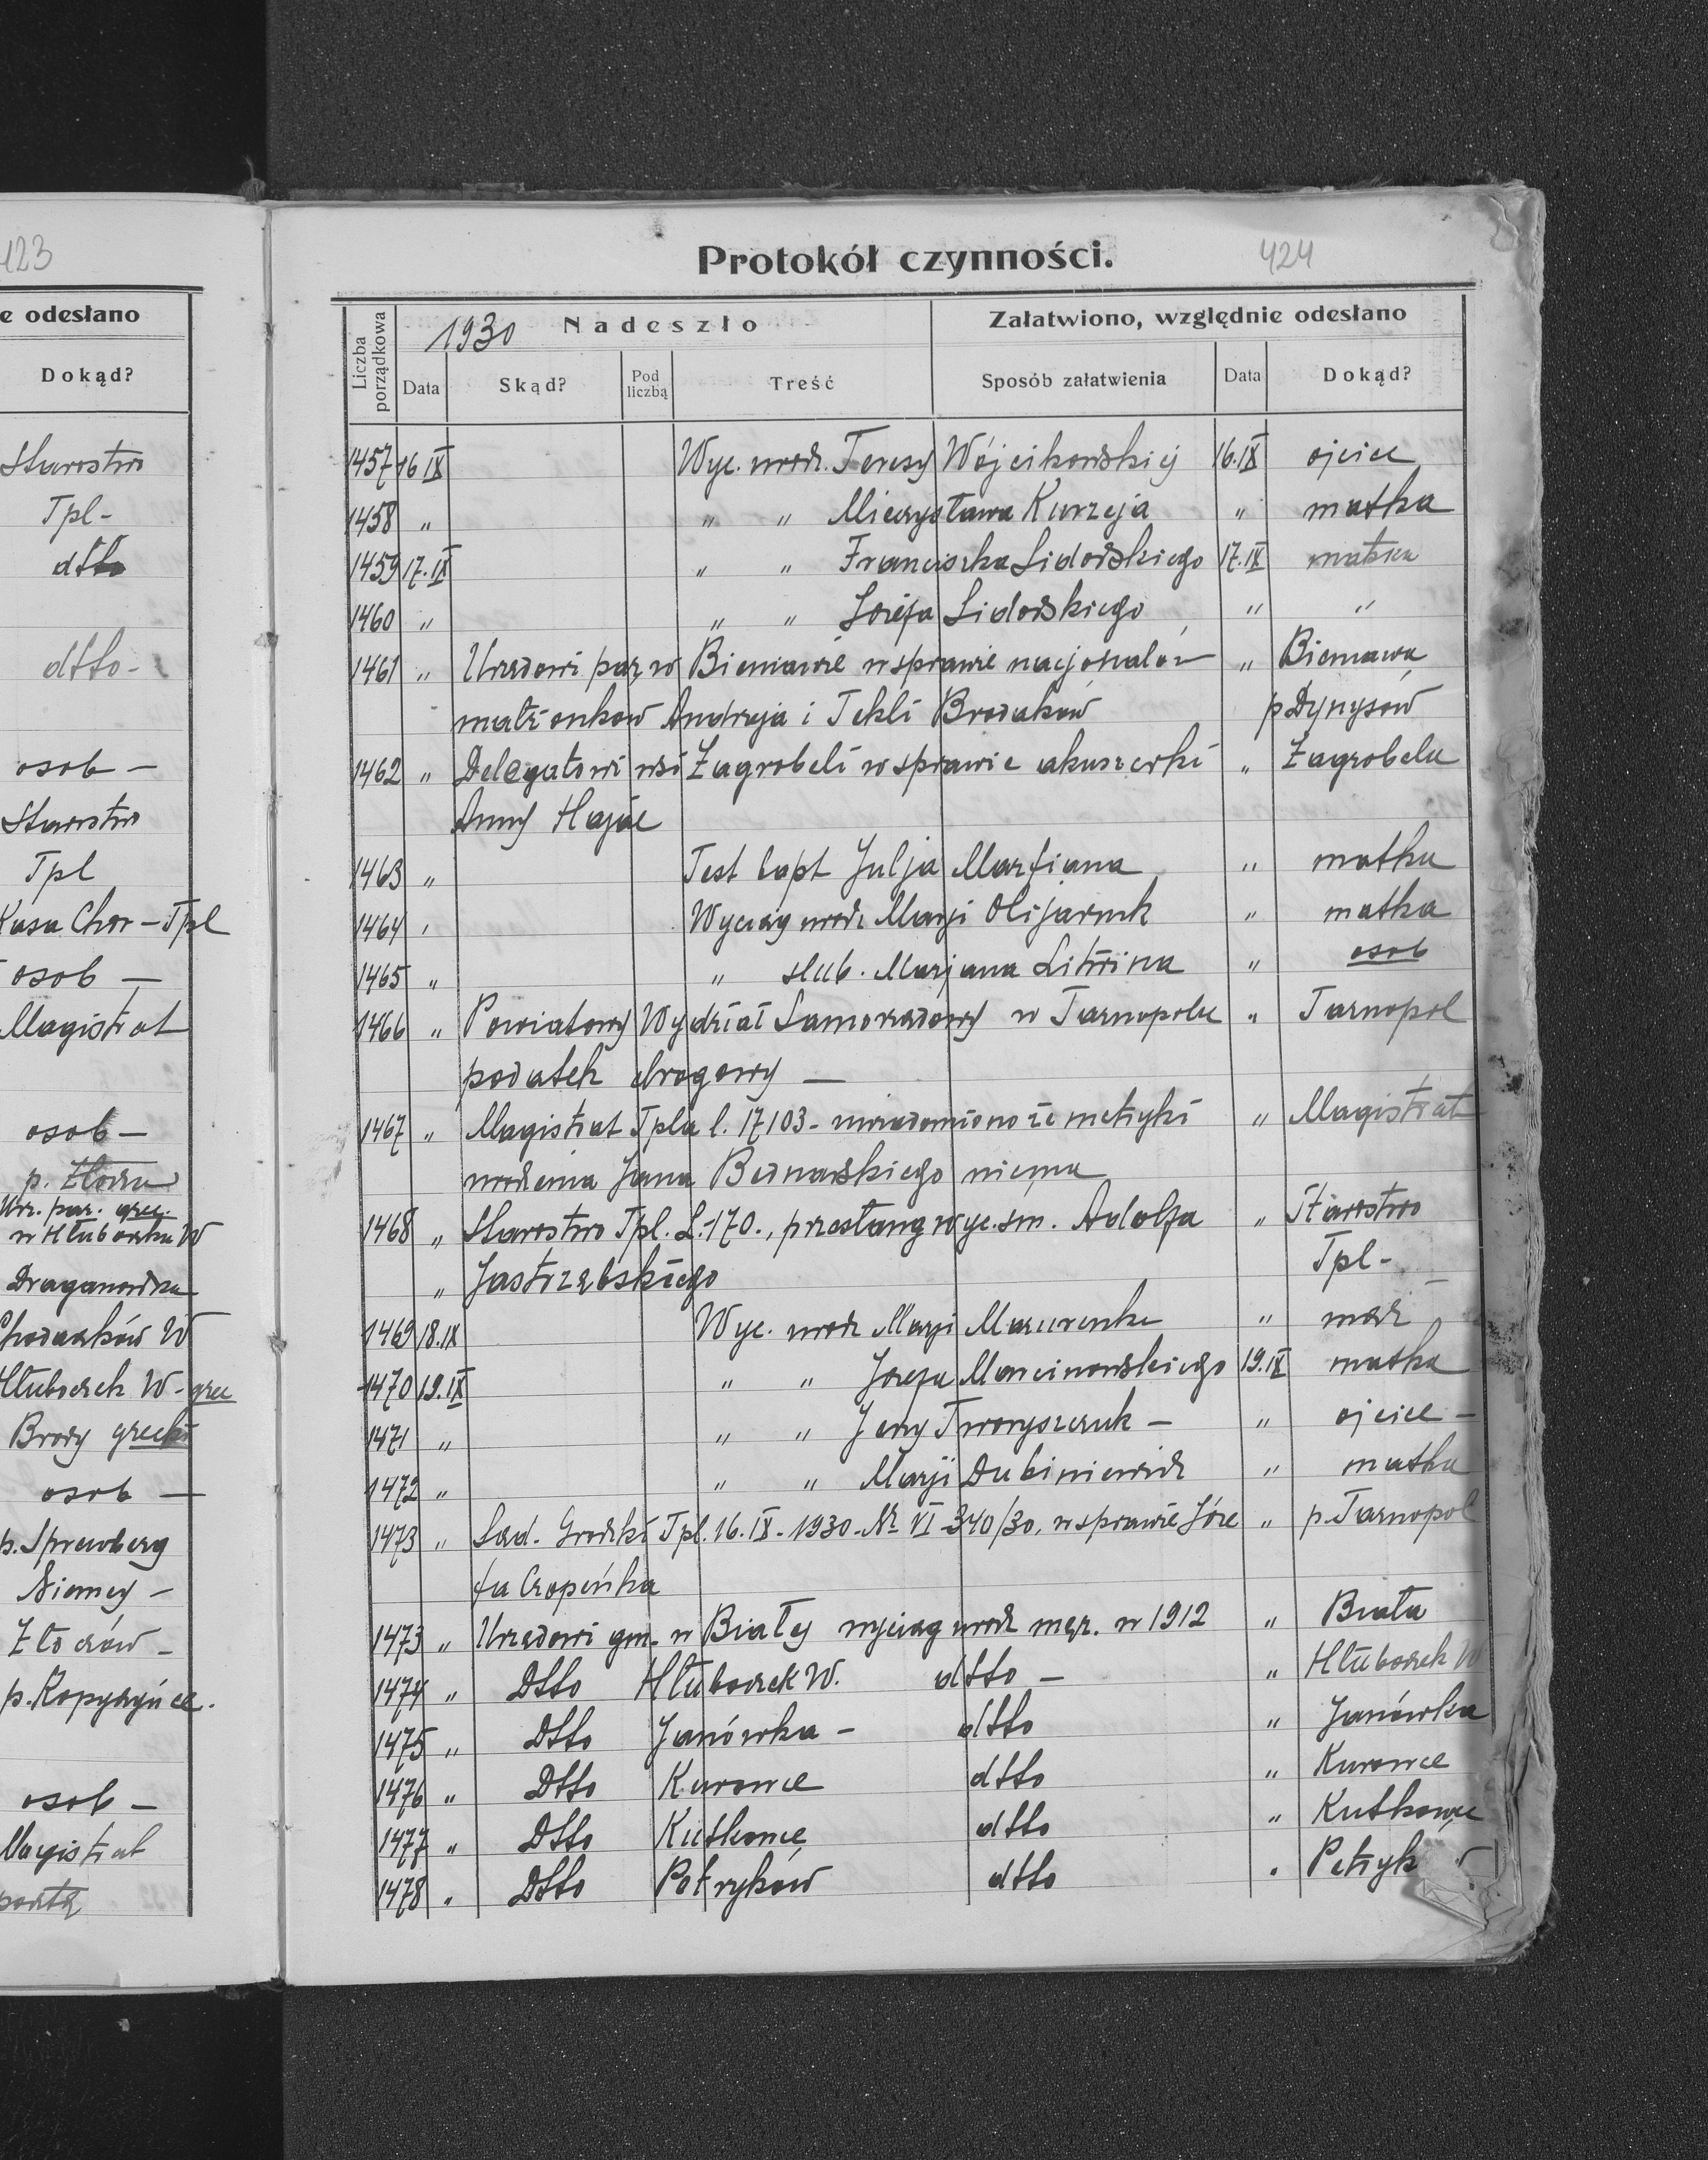 123
e odesłano
Dokąd?
Starostwo
Tpl-
dtto
dtto-
osob-
Starostwo
Tpl
Kasa Chor-Tpl
osob-
Magistrat
osob-
p.
Urz. par. grec.
w Hłuboczku W
Draganówka
Chodaczków W
Hłuboczek W-grec
Brody grecki
osob-
p. Spremberg
Niemcy-
Złoczów-
p. Kopyczyńce.
osob-
Magistrat
pocztą
Protokół czynności. 424
Liczba porządkowa
1930 Nadeszło
Załatwiono, względnie odesłano
Data Skąd? Pod liczbą Treść Sposób załatwienia Data Dokąd?
1457 16 IX Wyc. urodz. Teresy Wójcikowskiej 16.IX ojciec
1458 " " " Mieczysława Kurzeja " matka
1459 17.IX " " Franciszka Sidorskiego 17.IX matka
1460 " " " Józefa Sidorskiego " "
1461 " Urzędowi par. w Bieniawie w sprawie nacjonalów " Bieniawa
małżonków Andrzeja i Tekli Brodaków p Dynysów
1462 " Delegatowi wsi Zagrobeli w sprawie akuszerki " Zagrobela
Anny Hajac
1463 " Test bapt Julja Marfiana " matka
1464 " Wyciąg urodz Marji Olijarnuk " matka
1465 " " slub. Marjana " osob
1466 " Powiatowy Wydział Samorządowy w Tarnopolu " Tarnopol
podatek drogowy -
1467 " Magistrat Tpla l. 17103- uwiadomiono że metryki " Magistrat
urodzenia Jana Bednarskiego niema
1468 " Starostwo Tpl. L.-170., przesłano wyc. śm. Adolfa " Starostwo
" Jastrzębskiego Tpl-
1469 18.IX Wyc. urodz Marji Mazurenko " mąż
1470 19.IX " " Józefa Marcinowskiego 19.IX matka
1471 " " " Jerzy Tworyszczuk - " ojciec-
1472 " " " Marji Dubiniewicz " matka
1473 " Sąd. Grodzki Tpl. 16.IX-1930-№ VI-340/30. w sprawie Józe " p. Tarnopol
fa Czopeńka
1473 " Urzędowi gm- w Białej wyciąg urodz męż. w 1912 " Biała
1474 " Dtto Hłuboczek W. dtto - " Hłuboczek W
1475 " Dtto Janówka - dtto " Janówka
1476 " Dtto Kurowce dtto " Kurowce
1477 " Dtto Kutkowce dtto " Kutkowce
1478 " Dtto Petryków dtto " Petryk